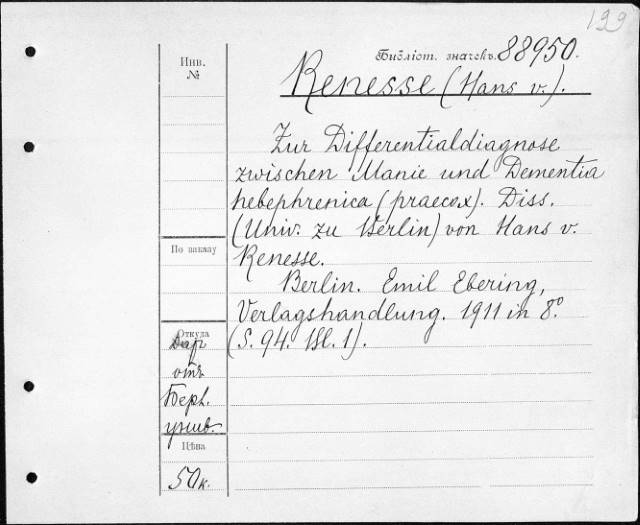 199
Инв.
№
Библіот. значекъ. 88950.
Renesse (Hans v.).
Zur Differentialdiagnose
zwischen Manie und Dementia
hebephrenica (praecox). Diss.
(Univ. zu Berlin) von Hans v.
Renesse.
Berlin. Emil Ebering,
Verlagshandlung. 1911 in 8º.
(S. 94. Bl. 1).
По заказу
Откуда
Дар
отъ
Берл.
унив.
Цѣна
50 к.